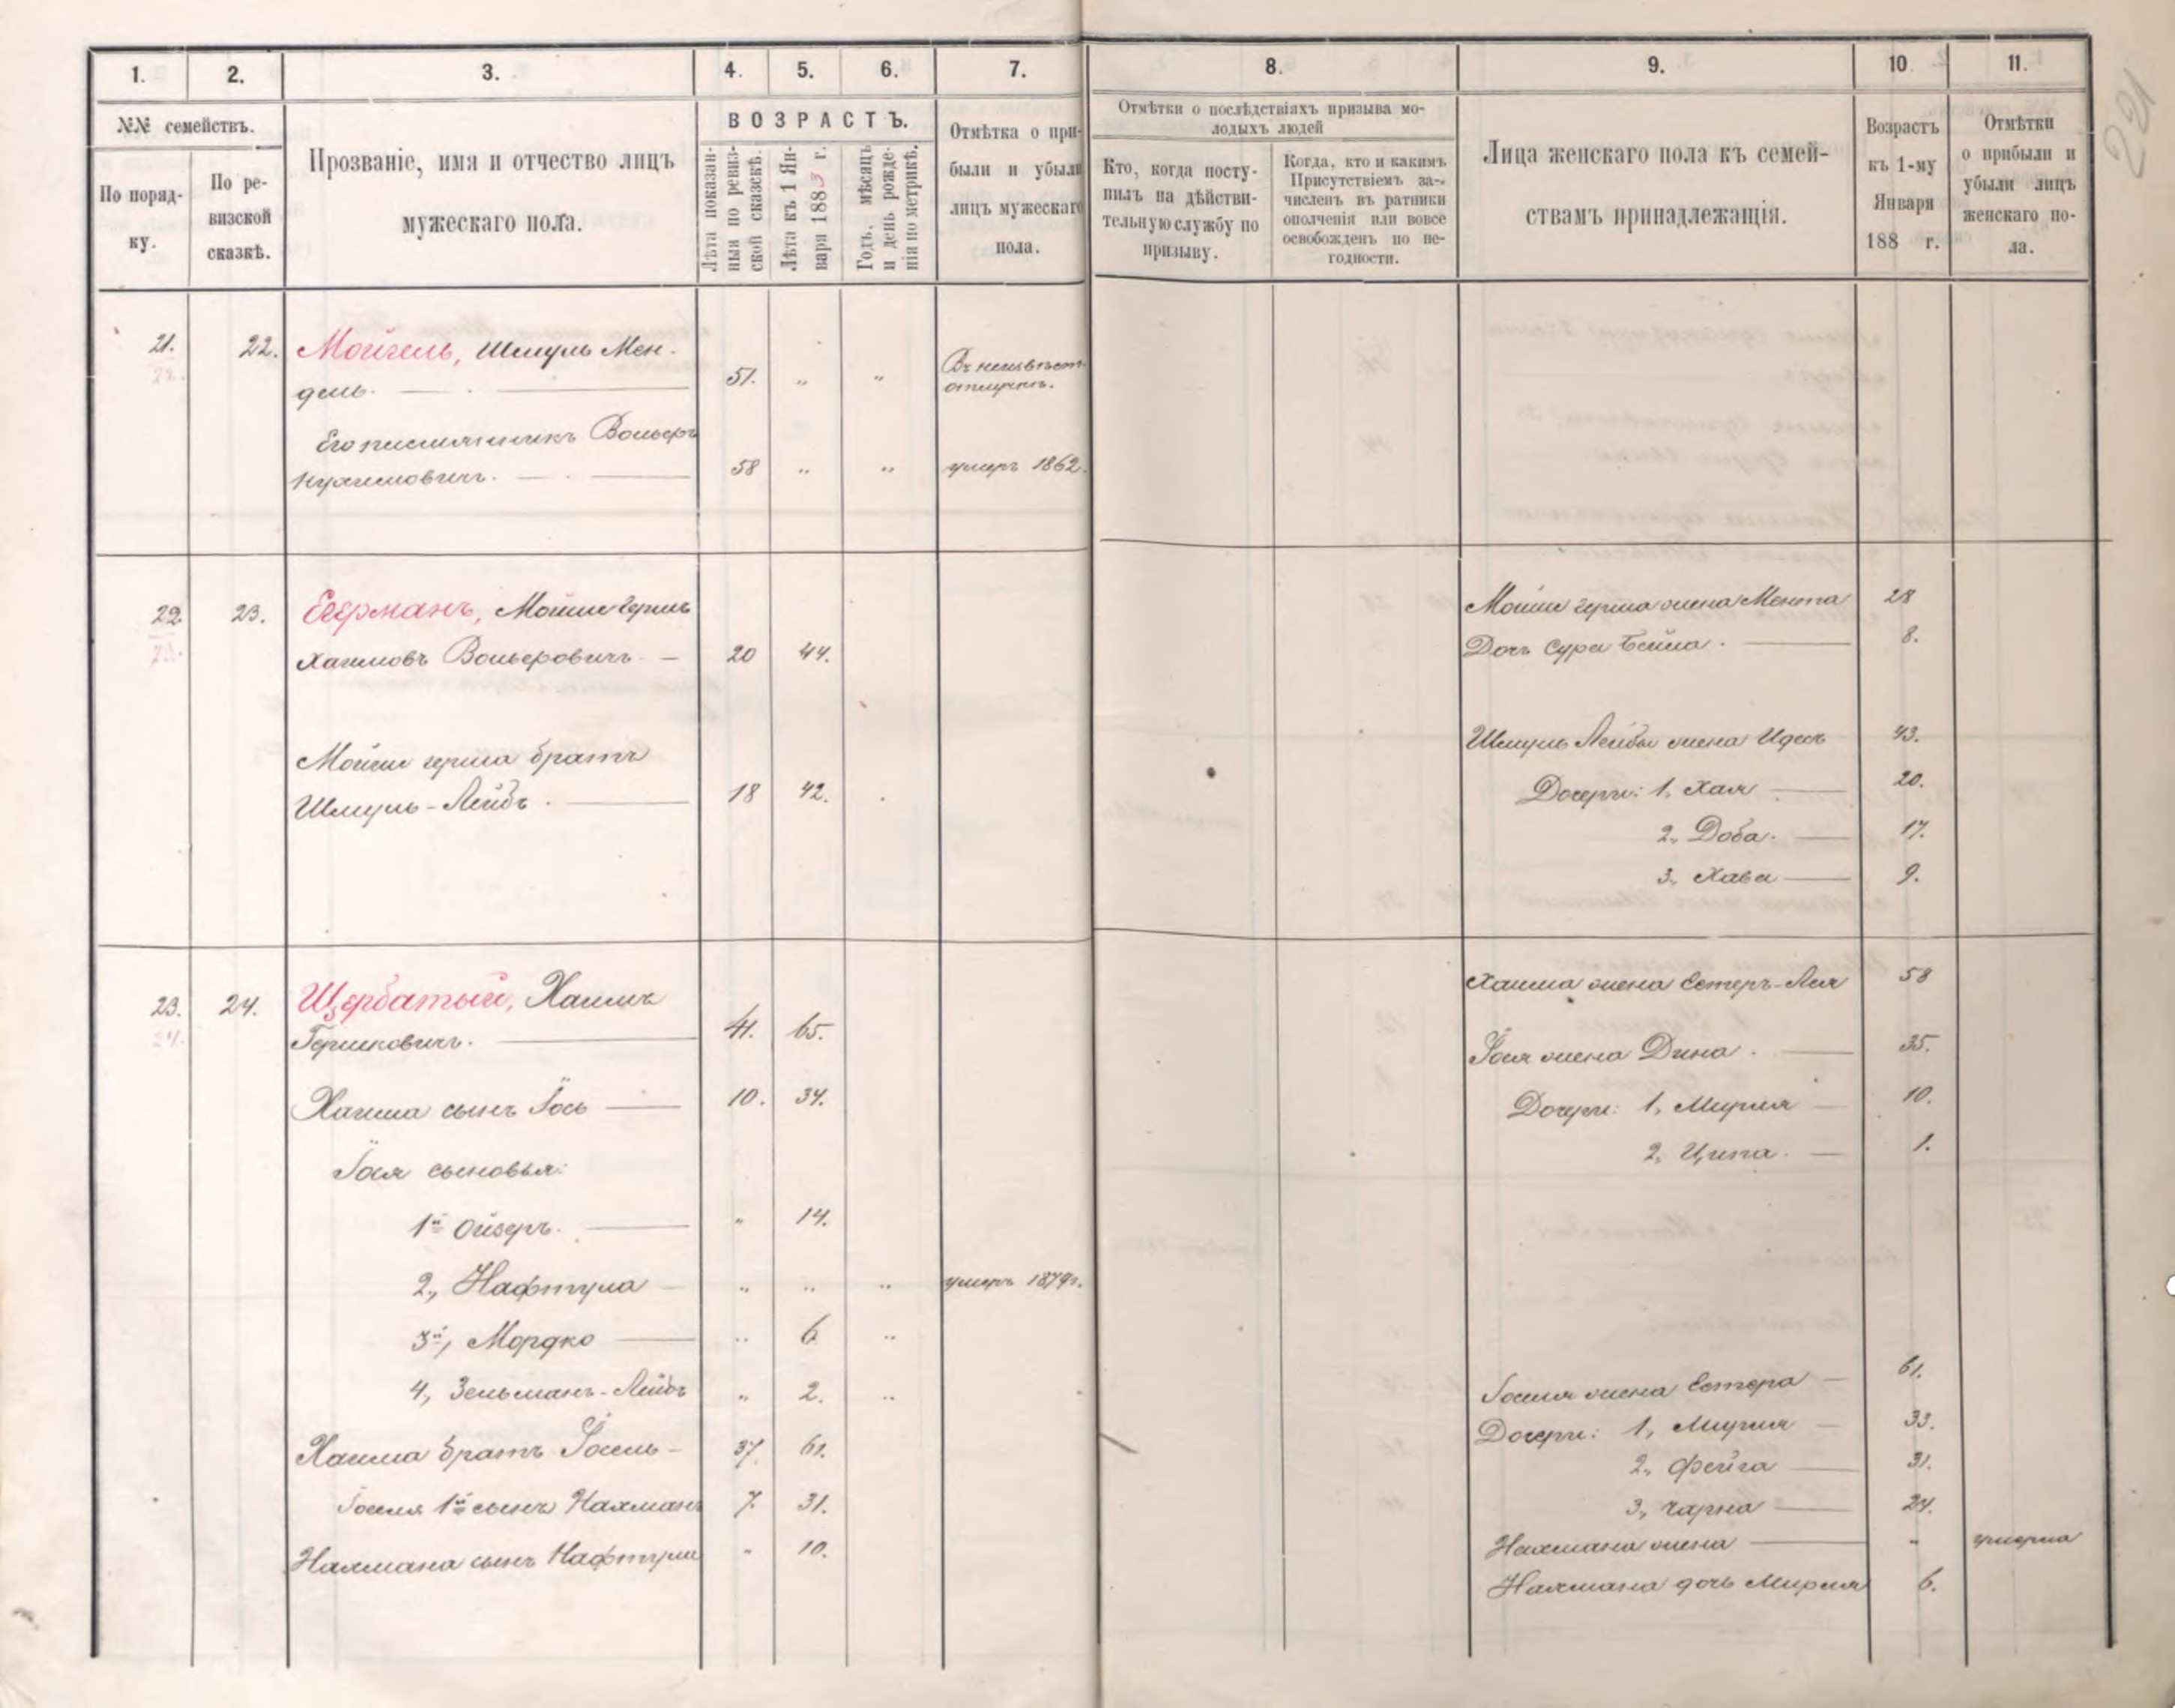 1. 2. 3. 4. 5. 6. 7. 8. 9. 10. 11.
№№ семействъ.
По поряд-
ку.
По ре-
визской
сказкѣ.
Прозваніе, имя и отчество лицъ
мужескаго пола.
ВОЗРАСТЪ.
Лѣта показан-
ныя по ревиз-
ской сказкѣ.
Лѣта къ 1 Ян-
варя 1883 г.
Годъ, мѣсяцъ
и день рожде-
нія по метрикѣ.
Отмѣтка о при-
были и убыли
лицъ мужескаго
пола.
Отмѣтки о послѣдствіяхъ призыва мо-
лодыхъ людей
Кто, когда посту-
пилъ на дѣйстви-
тельную службу по
призыву.
Когда, кто и какимъ
Присутствіемъ за-
численъ въ ратники
ополченія или вовсе
освобожденъ по не-
годности.
Лица женскаго пола къ семей-
ствамъ принадлежащія.
Возрастъ
къ 1-му
Января
188 г.
Отмѣтки
о прибыли и
убыли лицъ
женскаго по-
ла.
221
21. 22. Мойгель, Шмуль Мен-
22.
дель. 51. " " Въ неизвѣст.
отлучкѣ.
Его племянникъ Вольеръ
58 " " умеръ 1862.
22 23. Егерманъ, Мойше Гершъ
23.
Хаимовъ Вольеровичъ 20 44.
Мойше Герша братъ
Шмуль-Лейбъ. 18 42.
Мойше Герша жена Мента 28
Дочь Сура Бейла. 8.
Шмуль Лейбы жена Идесъ 43.
Дочери: 1, Хая 20.
2, Доба. 17.
3, Хава 9.
23. 24. Щербатый, Хаимъ
24.
Гершковичъ. 41. 65.
Хаима сынъ Іось 10. 34.
Іося сыновья:
1й Ойзеръ. " 14.
2, Нафтула " " " умеръ 1879г.
3й, Мордко " 6 "
4, Зельманъ-Лейбъ " 2. "
Хаима братъ Іосель 37. 61.
Іоселя 1й сынъ Нахманъ 7. 31.
Нахмана сынъ Нафтули " 10.
Хаима жена Естеръ-Лея 58
Іося жена Дина. 35.
Дочери: 1, Мирля 10.
2, Ципа. 1.
Іоселя жена Естера 61.
Дочери: 1, Мирля 33.
2, Фейга 31.
3, Чарна 24.
Нахмана жена " умерла
Нахмана дочь Мирля 6.